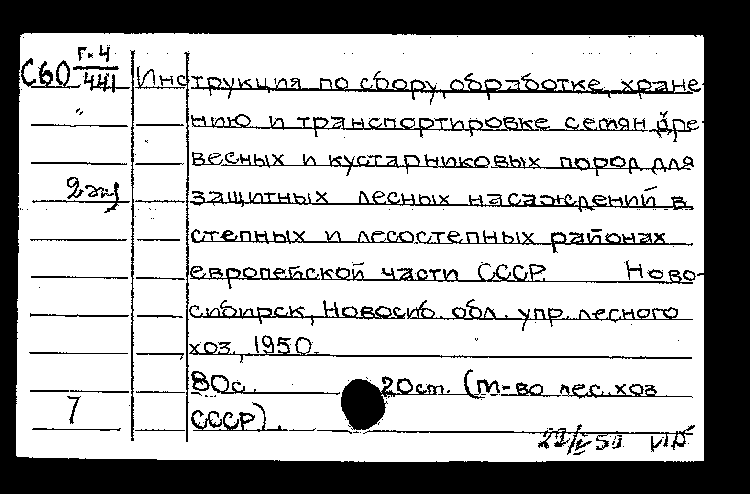 С60 г.4/441 Инструкция по сбору, обработке, хране-
нию и транспортировке семян дре-
весных и кустарниковых пород для
2 экз защитных лесных насаждений в
степных и лесостепных районах
европейской части СССР. Ново-
сибирск, Новосиб. обл. упр. лесного
хоз., 1950.
80с. 20см. (М-во лес. хоз
7 СССР).